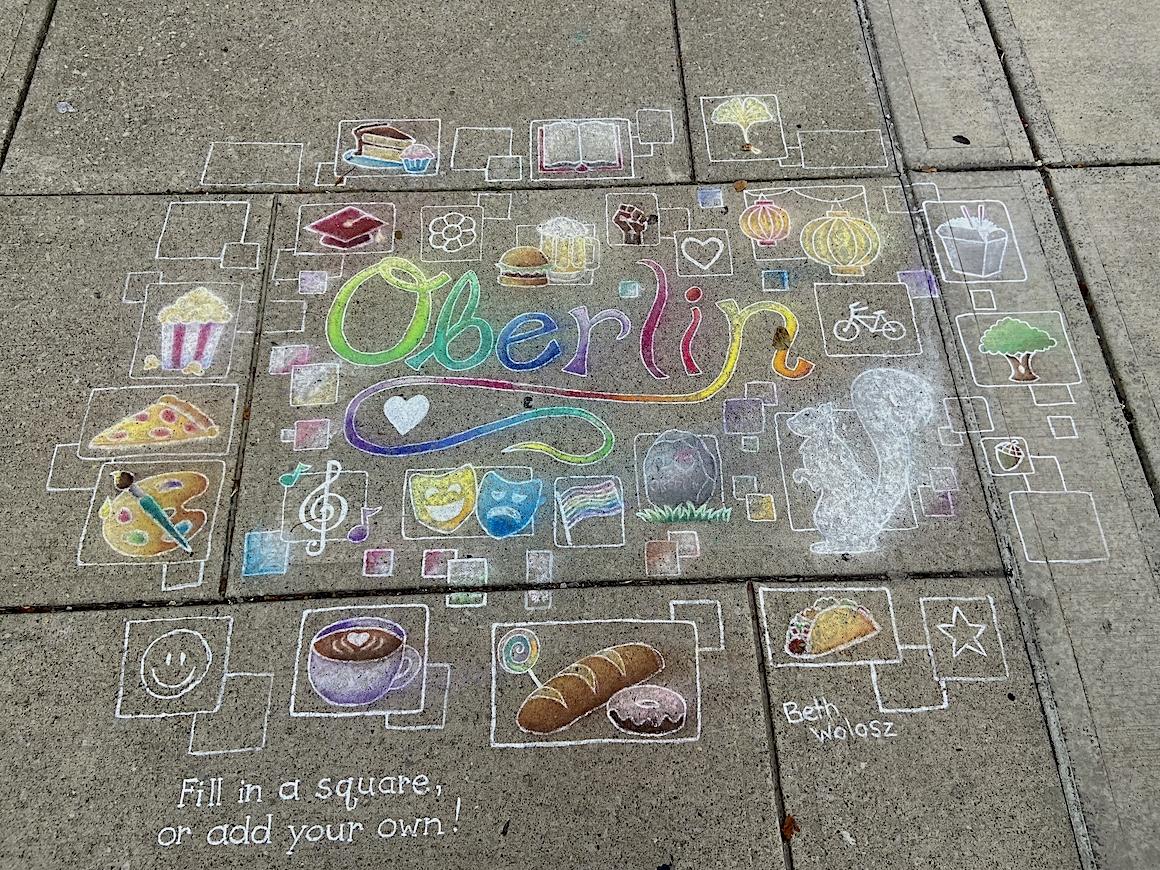 Oberlin
Beth
Wolosz
Fill in a square,
or add your own!